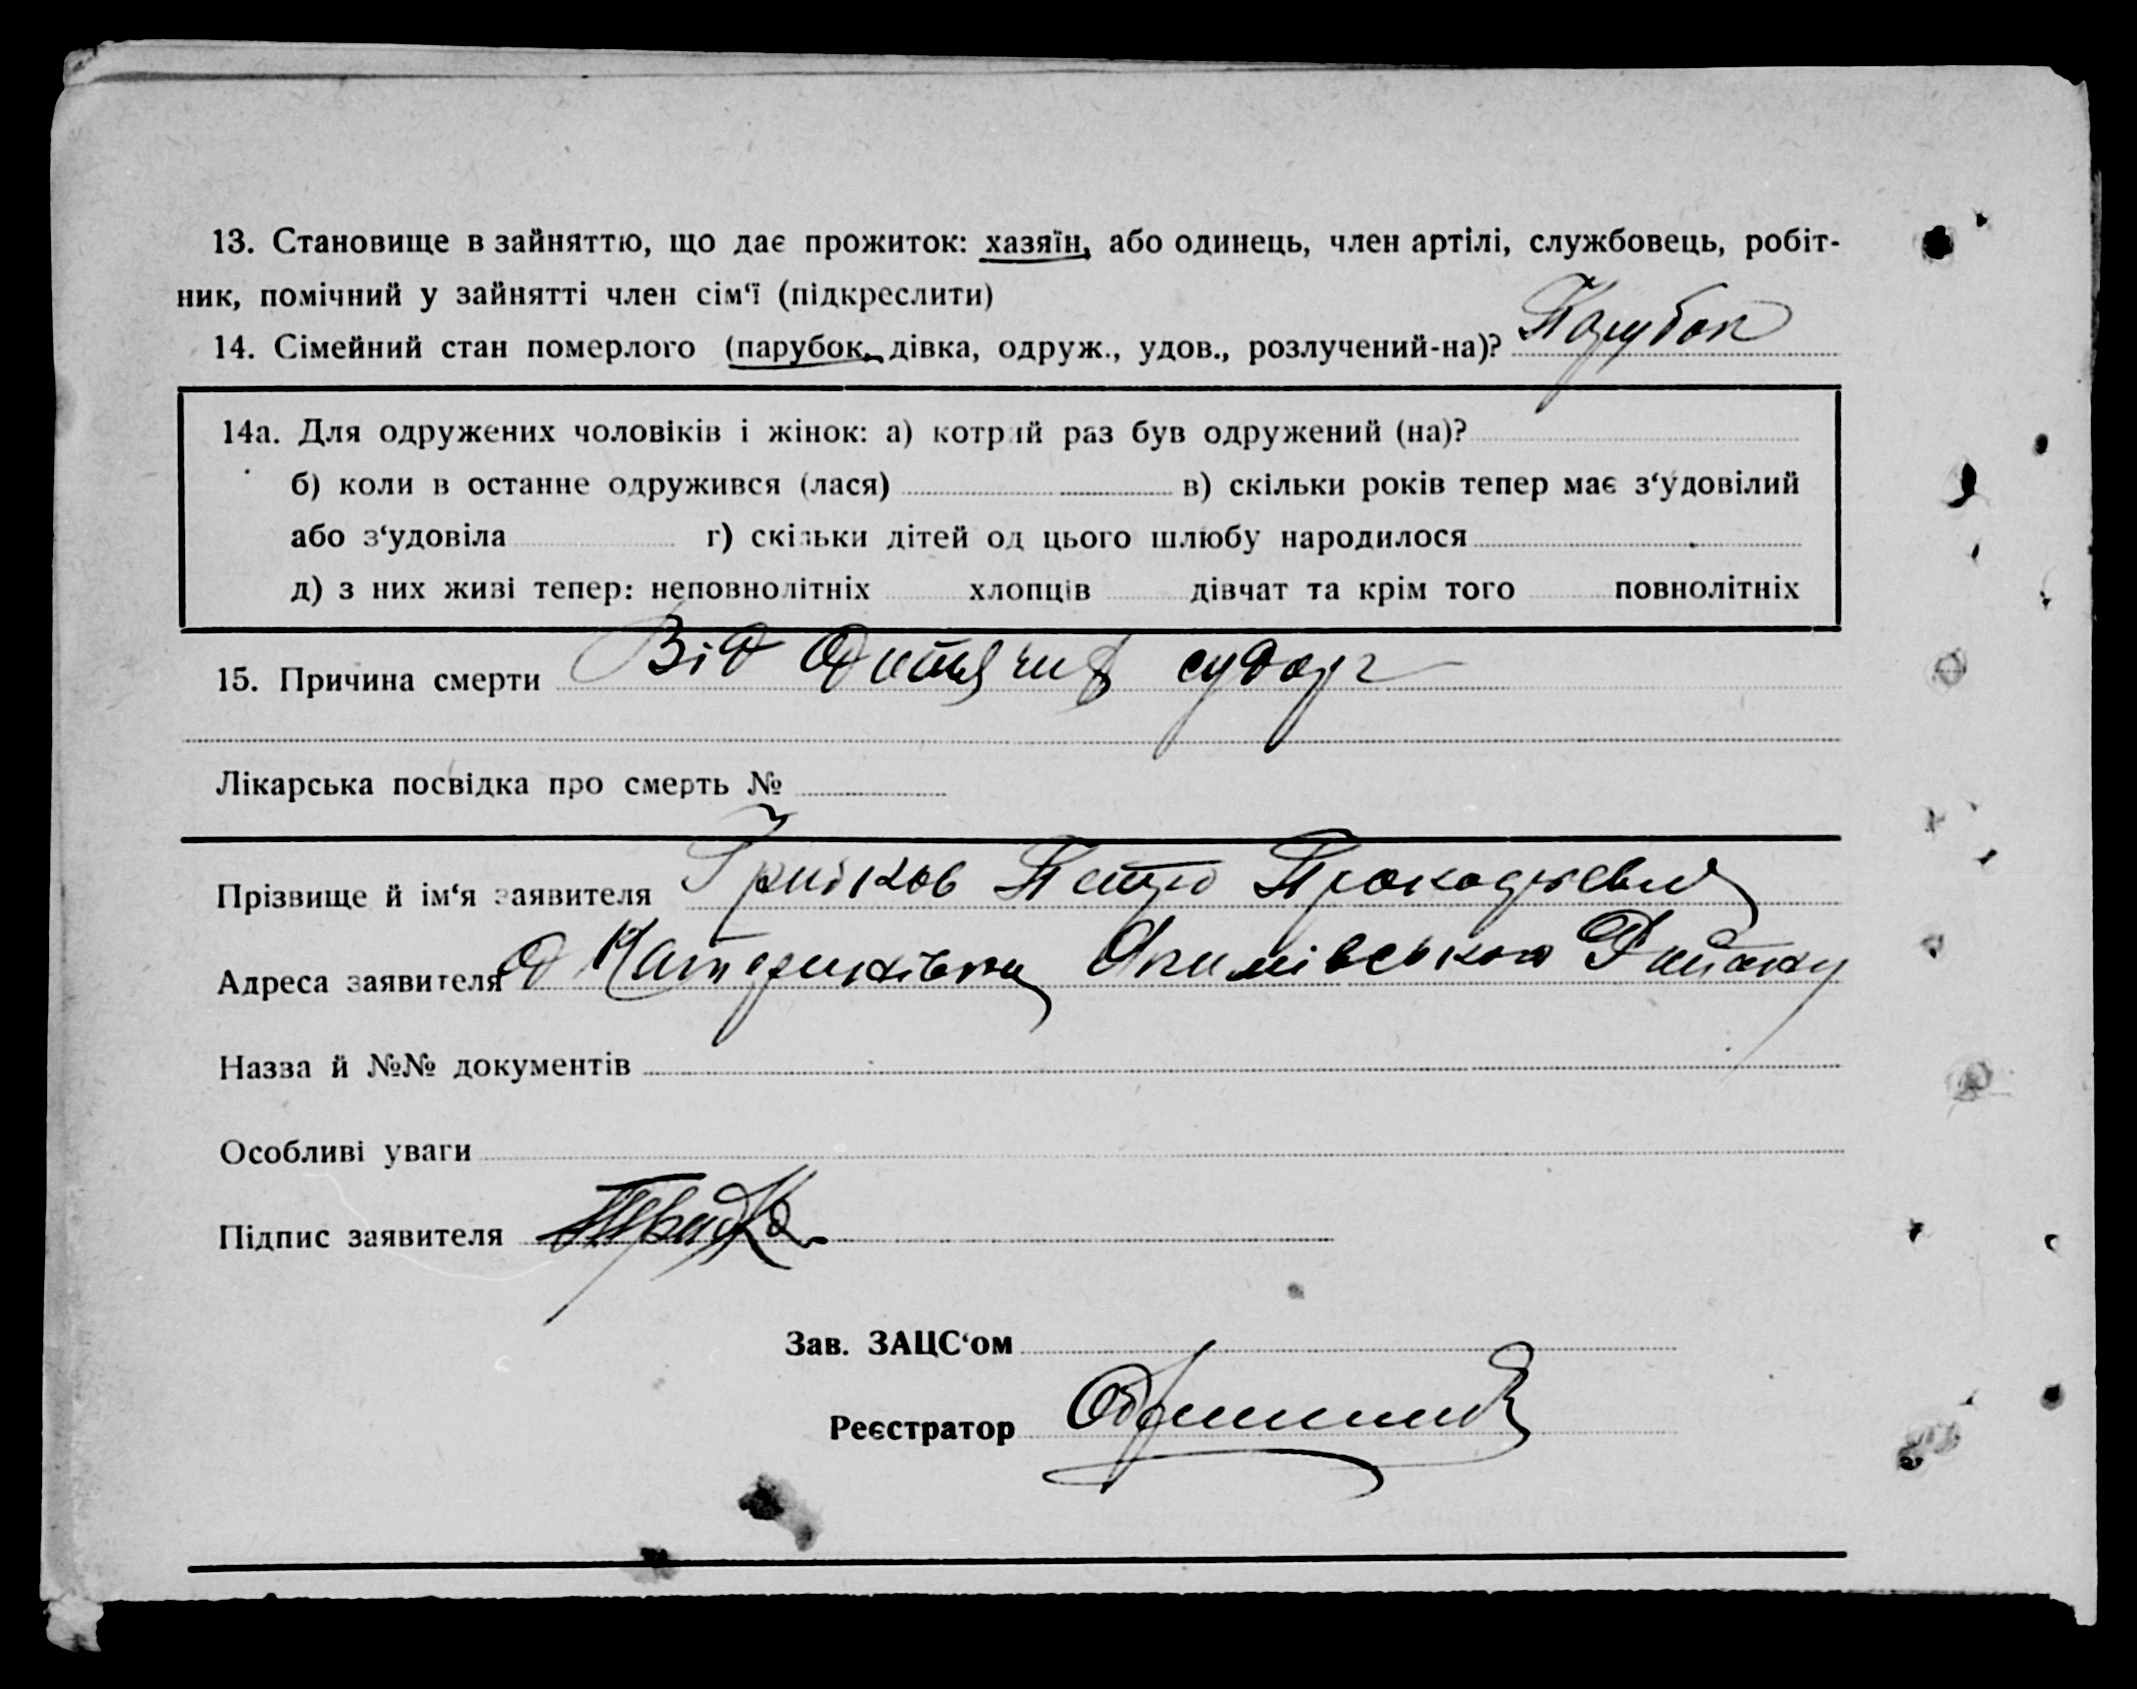 13. Становище в зайняттю, що дає прожиток: хазяїн, або одинець, член артілі, службовець, робіт-
ник, помічний у зайнятті член сім‘ї (підкреслити)
14. Сімейний стан померлого (парубок, дівка, одруж., удов., розлучений-на)? Парубок
14а. Для одружених чоловіків і жінок: а) котрий раз був одружений (на)?
б) коли в останнє одружився (лася) в) скільки років тепер має з‘удовілий
або з‘удовіла г) скільки дітей од цього шлюбу народилося
д) з них живі тепер: неповнолітніх хлопців дівчат та крім того повнолітніх
15. Причина смерти Від дитячих судорг
Лікарська посвідка про смерть №
Прізвище й ім‘я заявителя Петро
Адреса заявителя Катеринівка Якимівського Району
Назва й №№ документів
Особливі уваги
Підпис заявителя
Зав. ЗАЦС‘ом
Реєстратор